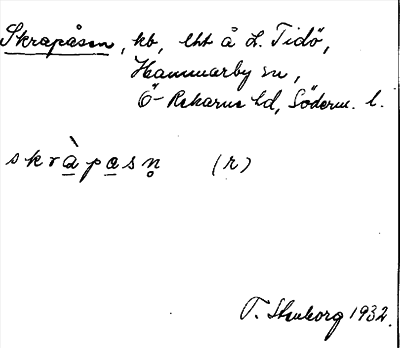 Skrapåsen, kb, lht å L. Tidö,
Hammarby sn,
Ö-Rekarne hd, Söderm. l.
skràpasn̥ (r)
T. Stenborg 1932.